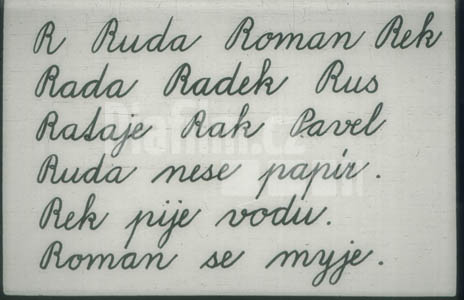 R Ruda Roman Rek
Rada Radek Rus
Rataje Rak Pavel
Ruda nese papír.
Rek pije vodu.
Roman se myje.
Diafilm.cz